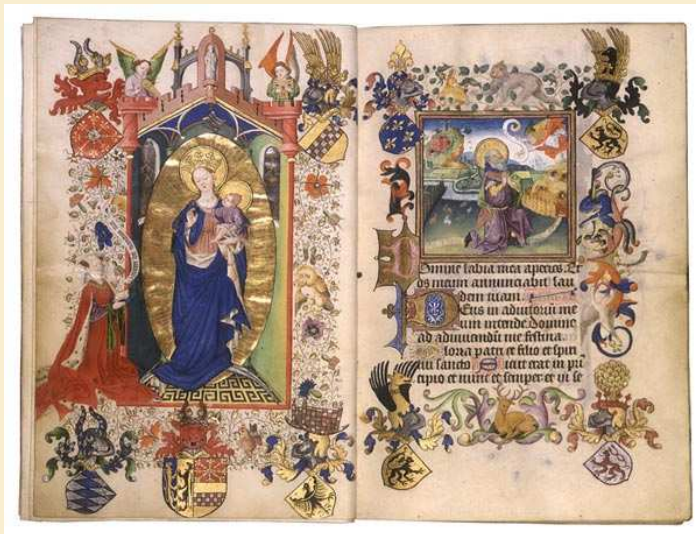 Domine labia mea aperies. Et
os meum annunciabit lau
dem tuam.
Deus in adiutoriū me
um intende. Domine
ad adiuvendū me festina
loria patri et filio et spiri
tui sancto Sicut erat in pri
cipio et nunc et semper et in se